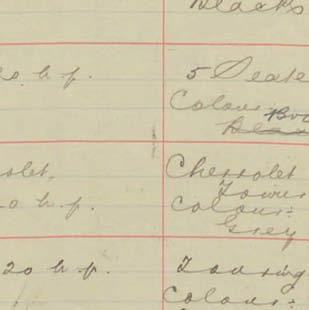 Blacks
20 h.p. 5 Seate
Colour
rolet. Chevrolet
0 h.p. Tourin
Colour:
Grey
20 h.p. Touring
Colour: